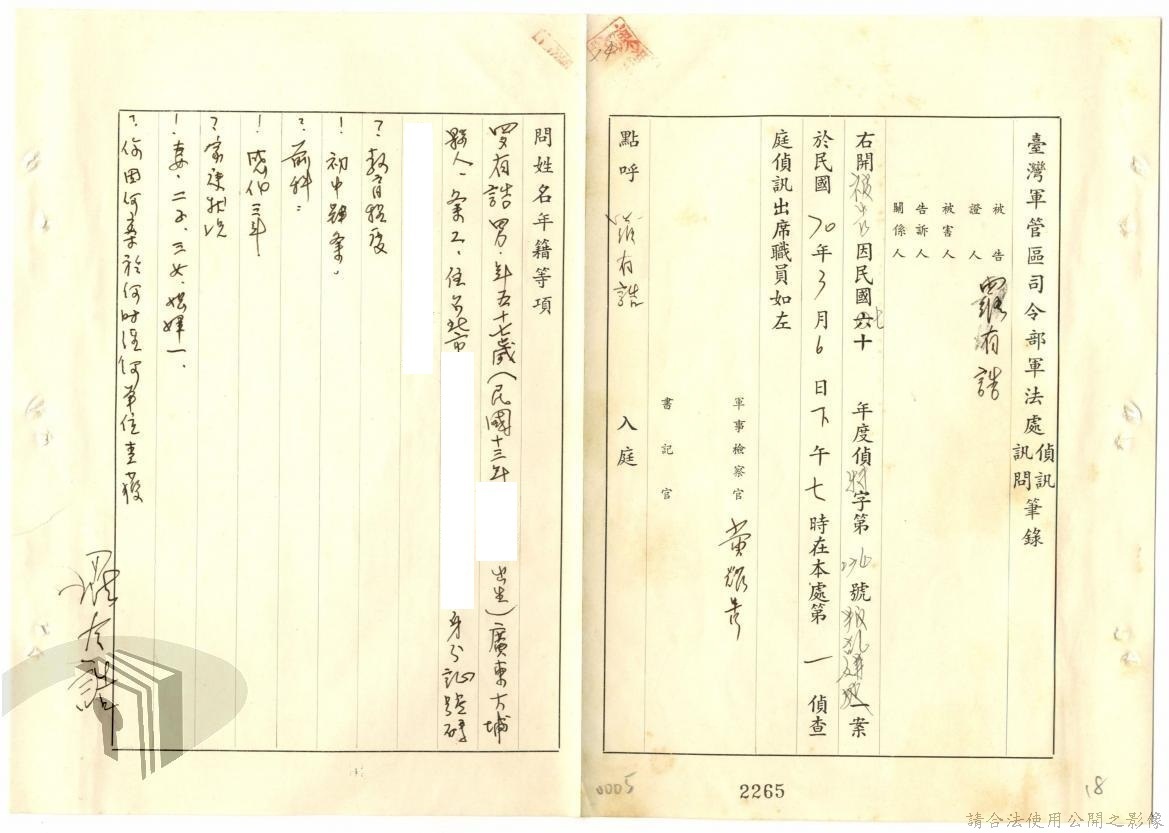 臺灣軍管區司令部軍法處偵訊訊問筆錄
被告 羅有誥
證人
被害人
告訴人
關係人
右開被告因民國六十年度偵字第號叛亂一案
於民國70年3月6日下午七時在本處第一偵查
庭偵訊出席職員如左
軍事檢察官 黃
書記官
點呼 羅有誥 入庭
2265
0005
18
問姓名年籍等項
羅有誥男.年五十七歲(民國十三年 出生)廣東大埔
縣人.業工.住台北市 身分證號碼
？教育程度
！初中肄業。
？前科：
！感化三年
？家庭狀況
！妻.二子.三女.
？你因何案於何時經何單位查獲
羅有誥
請合法使用公開之影像